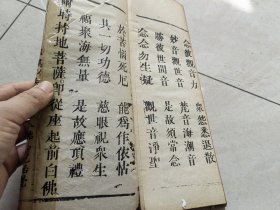 念彼觀音力 衆怨悉退散
妙音觀世音 梵音海潮音
勝彼世間音 是故須常念
念念勿生疑 觀世音淨聖
於苦惱死厄 能爲作依怙
具一切功德 慈眼視衆生
福聚海無量 是故應頂禮
爾時持地菩薩即從座起前白佛